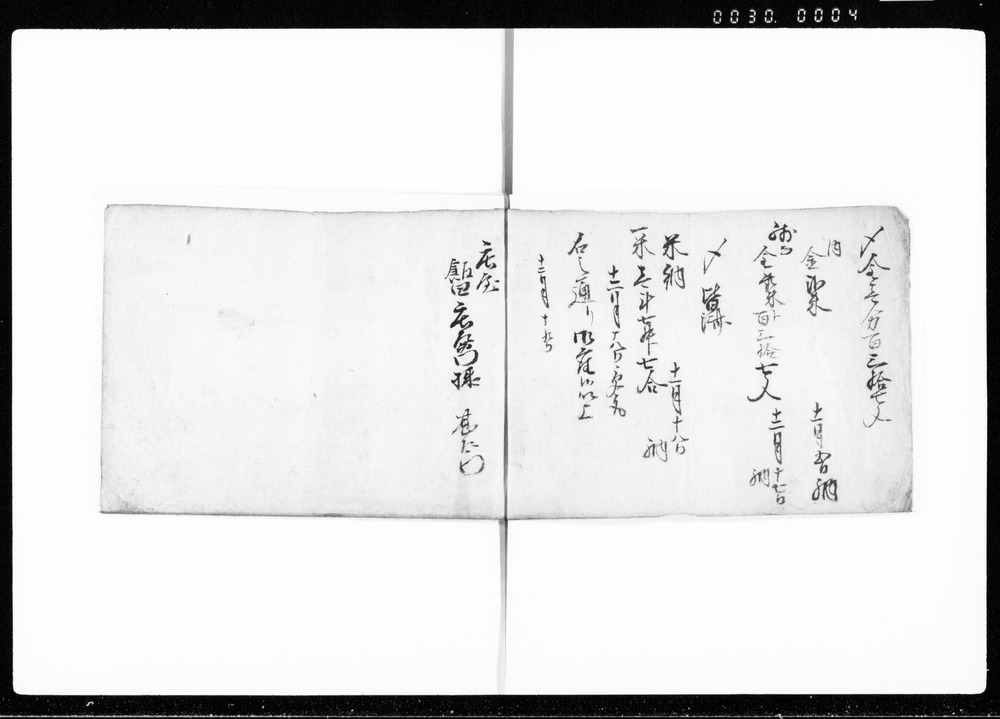 0030. 0004
〆金壱分百三拾七文
内
金弐朱
十一月五日納
残而
金弐朱ト百三拾七文
十二月十七日
納
〆皆済
米納
十一月十八日
納
一米壱斗七升七合
十二月十八日
右之通り御座候以上
十二月十八日
庄屋
飯田庄左衛門様
甚左衛門